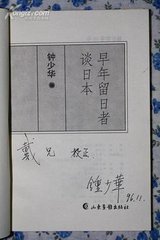 早年留日者
谈日本
钟少华 编
戴 兄 教正
鍾少華
96.11.
山东画报出版社